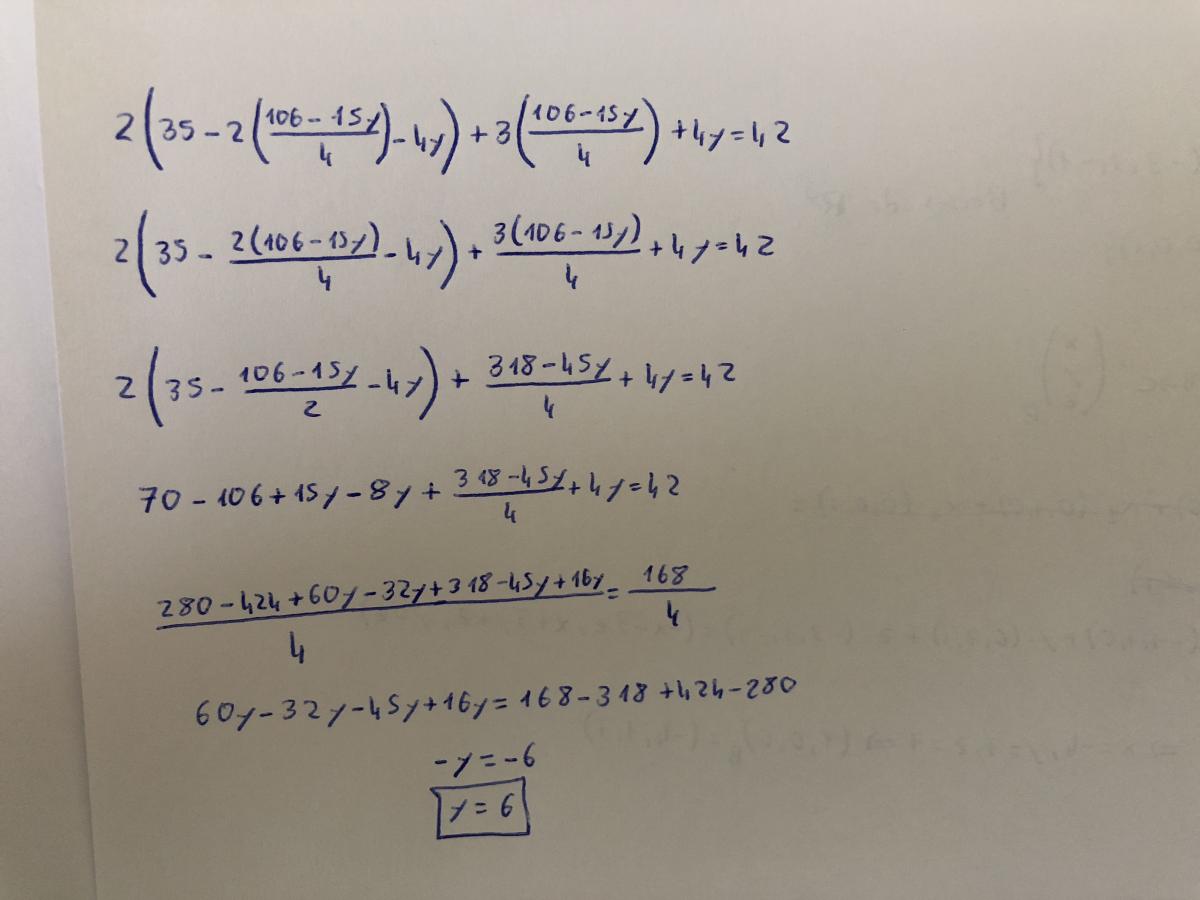 2(35 - 2((106 - 15y)/4) - 4y) + 3((106 - 15y)/4) + 4y = 42
2(35 - 2(106 - 15y)/4 - 4y) + 3(106 - 15y)/4 + 4y = 42
2(35 - (106 - 15y)/2 - 4y) + (318 - 45y)/4 + 4y = 42
70 - 106 + 15y - 8y + (318 - 45y)/4 + 4y = 42
(280 - 424 + 60y - 32y + 318 - 45y + 16y)/4 = 168/4
60y - 32y - 45y + 16y = 168 - 318 + 424 - 280
-y = -6
y = 6